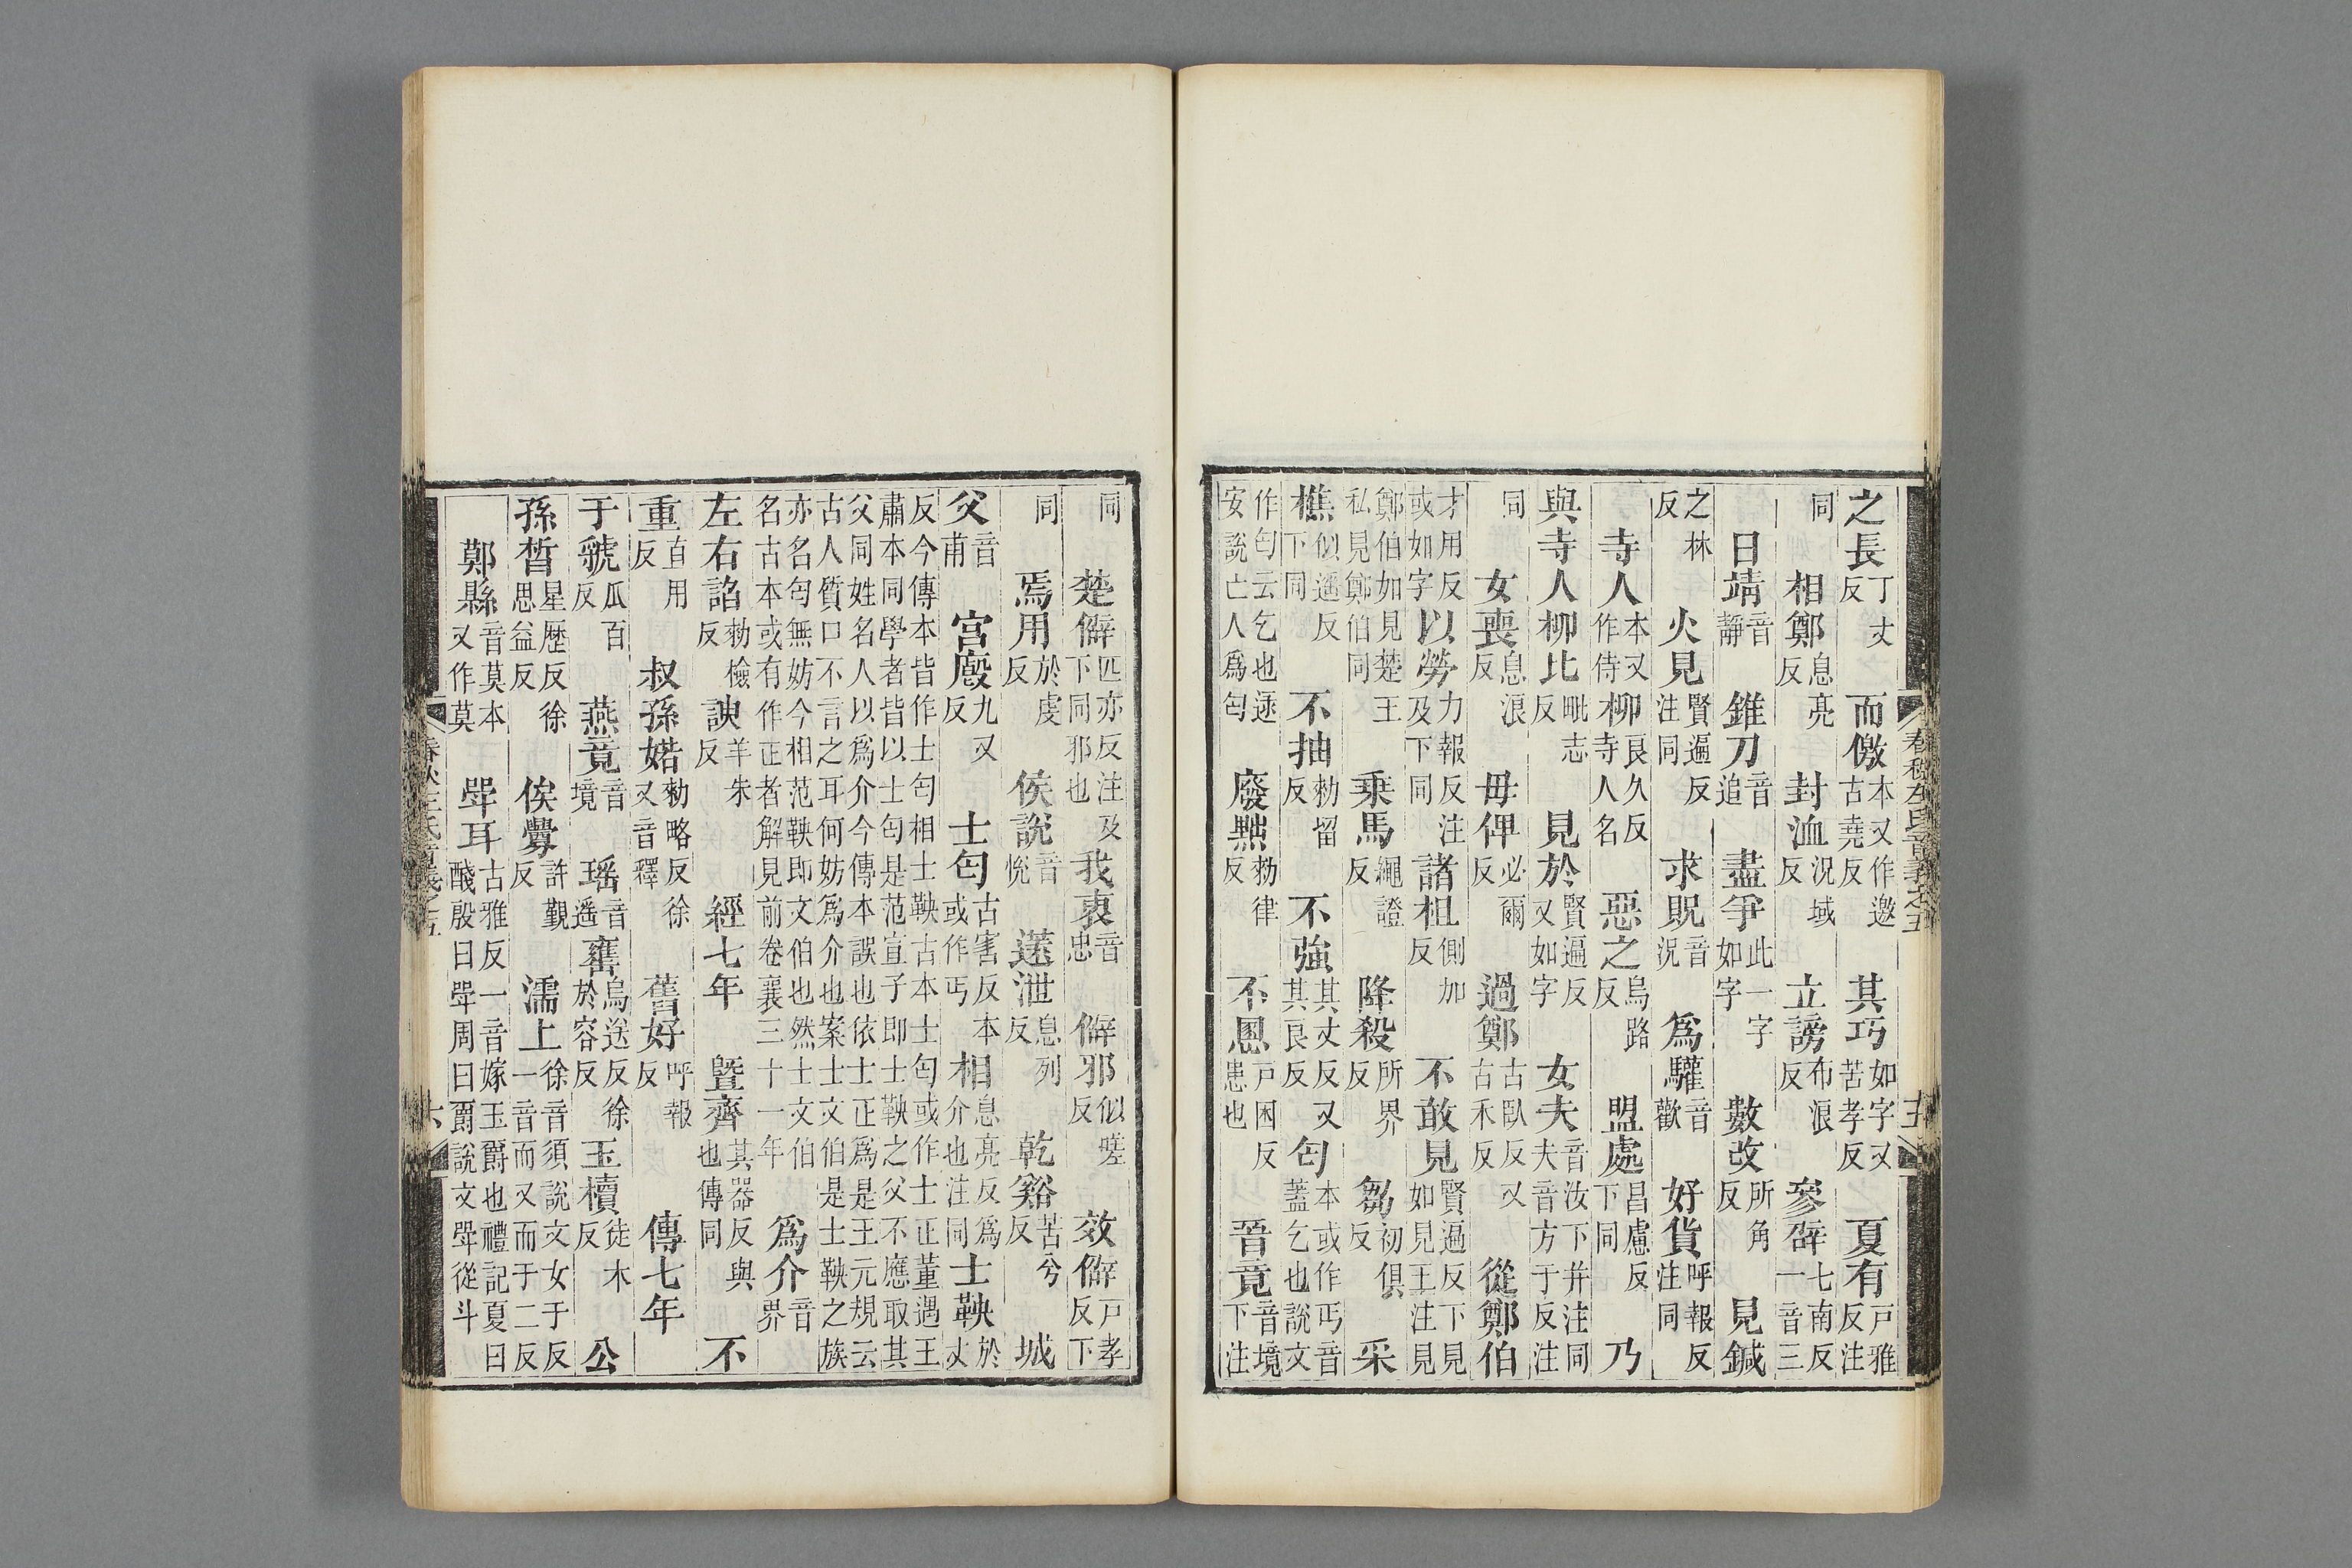 之長丁丈反而儌本又作邀古堯反其巧如字又苦孝反夏有戶雅反注
同相鄭息亮反封洫況域反立謗布浪反參辟七南反一音三
日靖音靜錐刀音追盡爭此一字如字數改所角反見鍼
之林反火見賢遍反注同求貺音況爲驩音歡好貨呼報反注同
寺人本又作侍柳良久反寺人名惡之烏路反盟處昌慮反下同乃
與寺人柳比毗志反見於賢遍反又如字女夫音汝下并注同夫音方于反注
同女喪息浪反毋俾必爾反過鄭古臥反又古禾反從鄭伯
才用反或如字以勞力報反注及下同諸柤側加反不敢見賢遍反下見如見王注見
鄭伯如見楚王私見鄭伯同乗馬繩證反降殺所界反芻初俱反采
樵似遥反下同不抽勑留反不強其丈反又其良反匄本或作丐音蓋乞也說文
作匄云乞也逯安說亡人爲匄廢黜勑律反不慁戶困反患也晉竟音境下注
春秋左氏音義之五
五
同楚僻匹亦反注及下同邪也我衷音忠僻邪似嗟反效僻戶孝反下
同焉用於虔反侯說音悅薳泄息列反乾谿苦兮反城
父音甫宮廄九又反士匄古害反本或作丐相息亮反爲介也注同士鞅於丈
反今傳本皆作士匄相士鞅古本士匄或作士正董遇王
肅本同學者皆以士匄是范宣子即士鞅之父不應取其
父同姓名人以爲介今傳本誤也依士正爲是王元規云
古人質口不言之耳何妨爲介也案士文伯是士鞅之族
亦名匄無妨今相范鞅即文伯也然士文伯
名古本或有作正者解見前卷襄三十一年爲介音界
左右諂勑檢反諛羊朱反經七年暨齊其器反與也傳同不
重直用反叔孫婼勑略反徐又音釋舊好呼報反傳七年
于虢瓜百反燕竟音境瑶音遥罋烏送反徐於容反玉櫝徒木反公
孫皙星歷反徐思益反侯釁許覲反濡上徐音須說文女于反一音而又而于二反
鄭縣音莫本又作莫斝耳古雅反一音嫁玉爵也禮記夏曰醆殷曰斝周曰爵說文斝從斗
春秋左氏音義之五
六